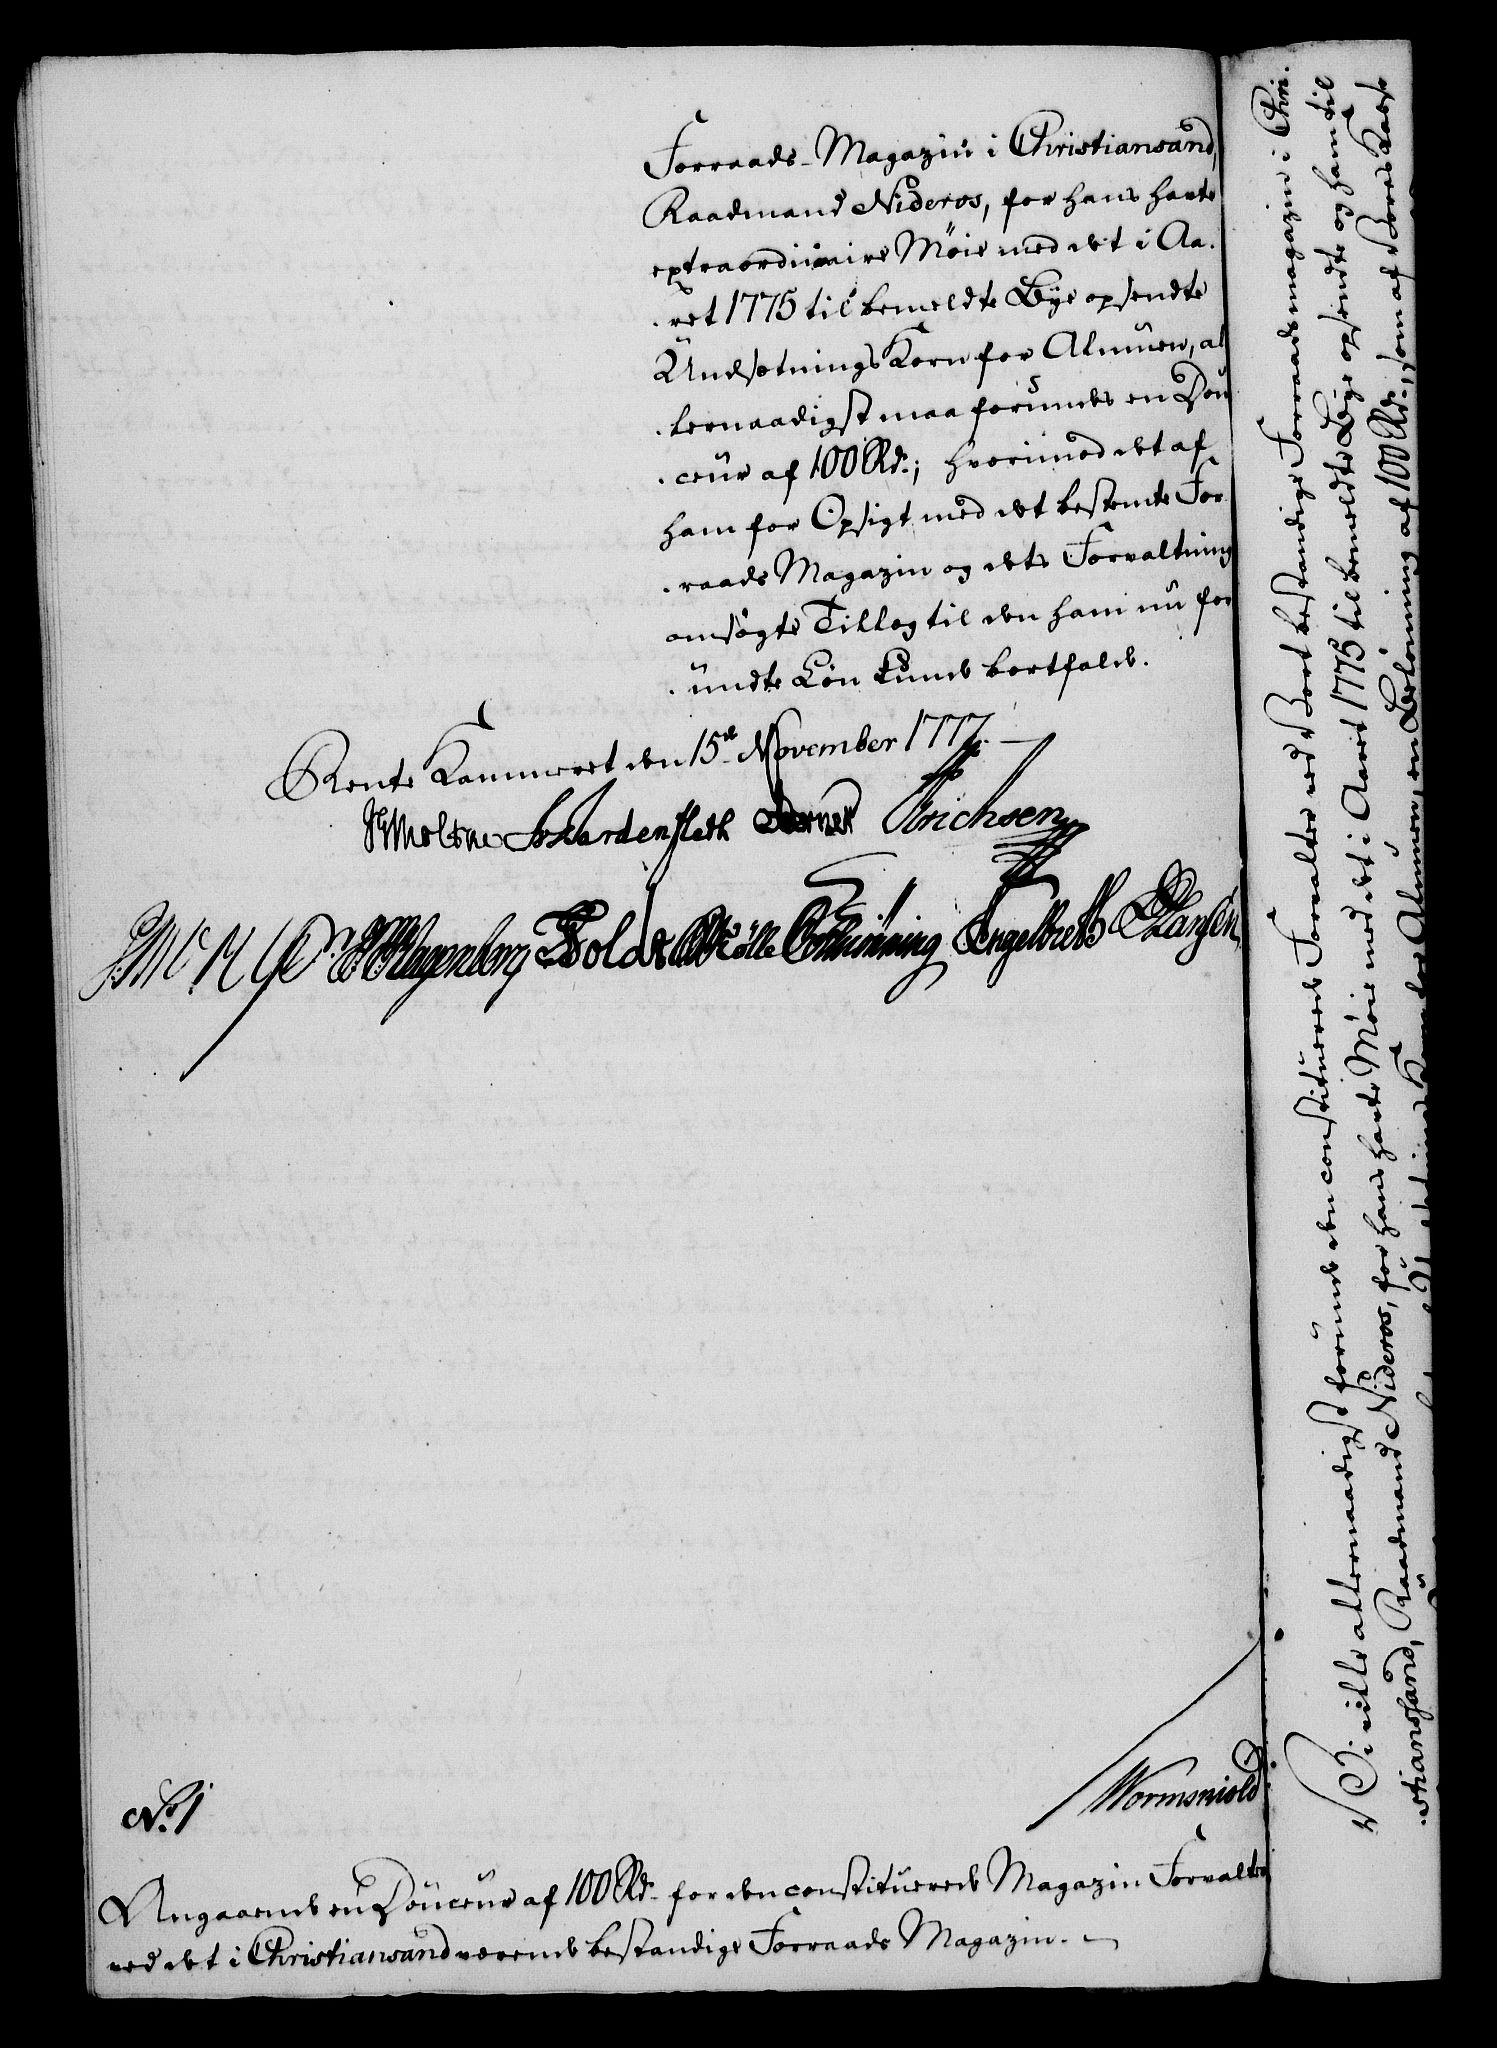 Forraads-Magazin i Christiansand,
Raadmand Nideros, for hans havte
extraordinaire Möie med det i Aa-
ret 1775 til bemeldte Bye opsendte
Undsetnings Korn for Almuen, al-
lernaadigst maa forundes en Dou-
ceur af 100 Rd.; hvorimod det af
ham for Opsigt med det bestemte For-
raads Magazin og dets Forvaltning
ansøgte Tillæg til den ham nu for-
undte Løn kunde bortfalde.
Rente Kammeret den 15de November 1777.
Moltke Schardenfleth Berner Erichsen
Hagenberg Holde Rölle Ottho Müning Engelbreth Hansen
Wormskiold
No. 1
Angaaende en Douceur af 100 Rd. for den constituerede Magazin Forvalter
ved det i Christiansand værende bestandige Forraads Magazin.
Vi ville allernaadigst forunde den constituerede Forvalter ved Vort bestandige Forraadsmagazin i Chri-
stiansand, Raadmand Nideros, for hans havte Möie med det i Aaret 1775 til bemeldte Bye opsendte og ham til
Korn for Almuen, en Belønning af 100 Rd., som af Vores Kasse